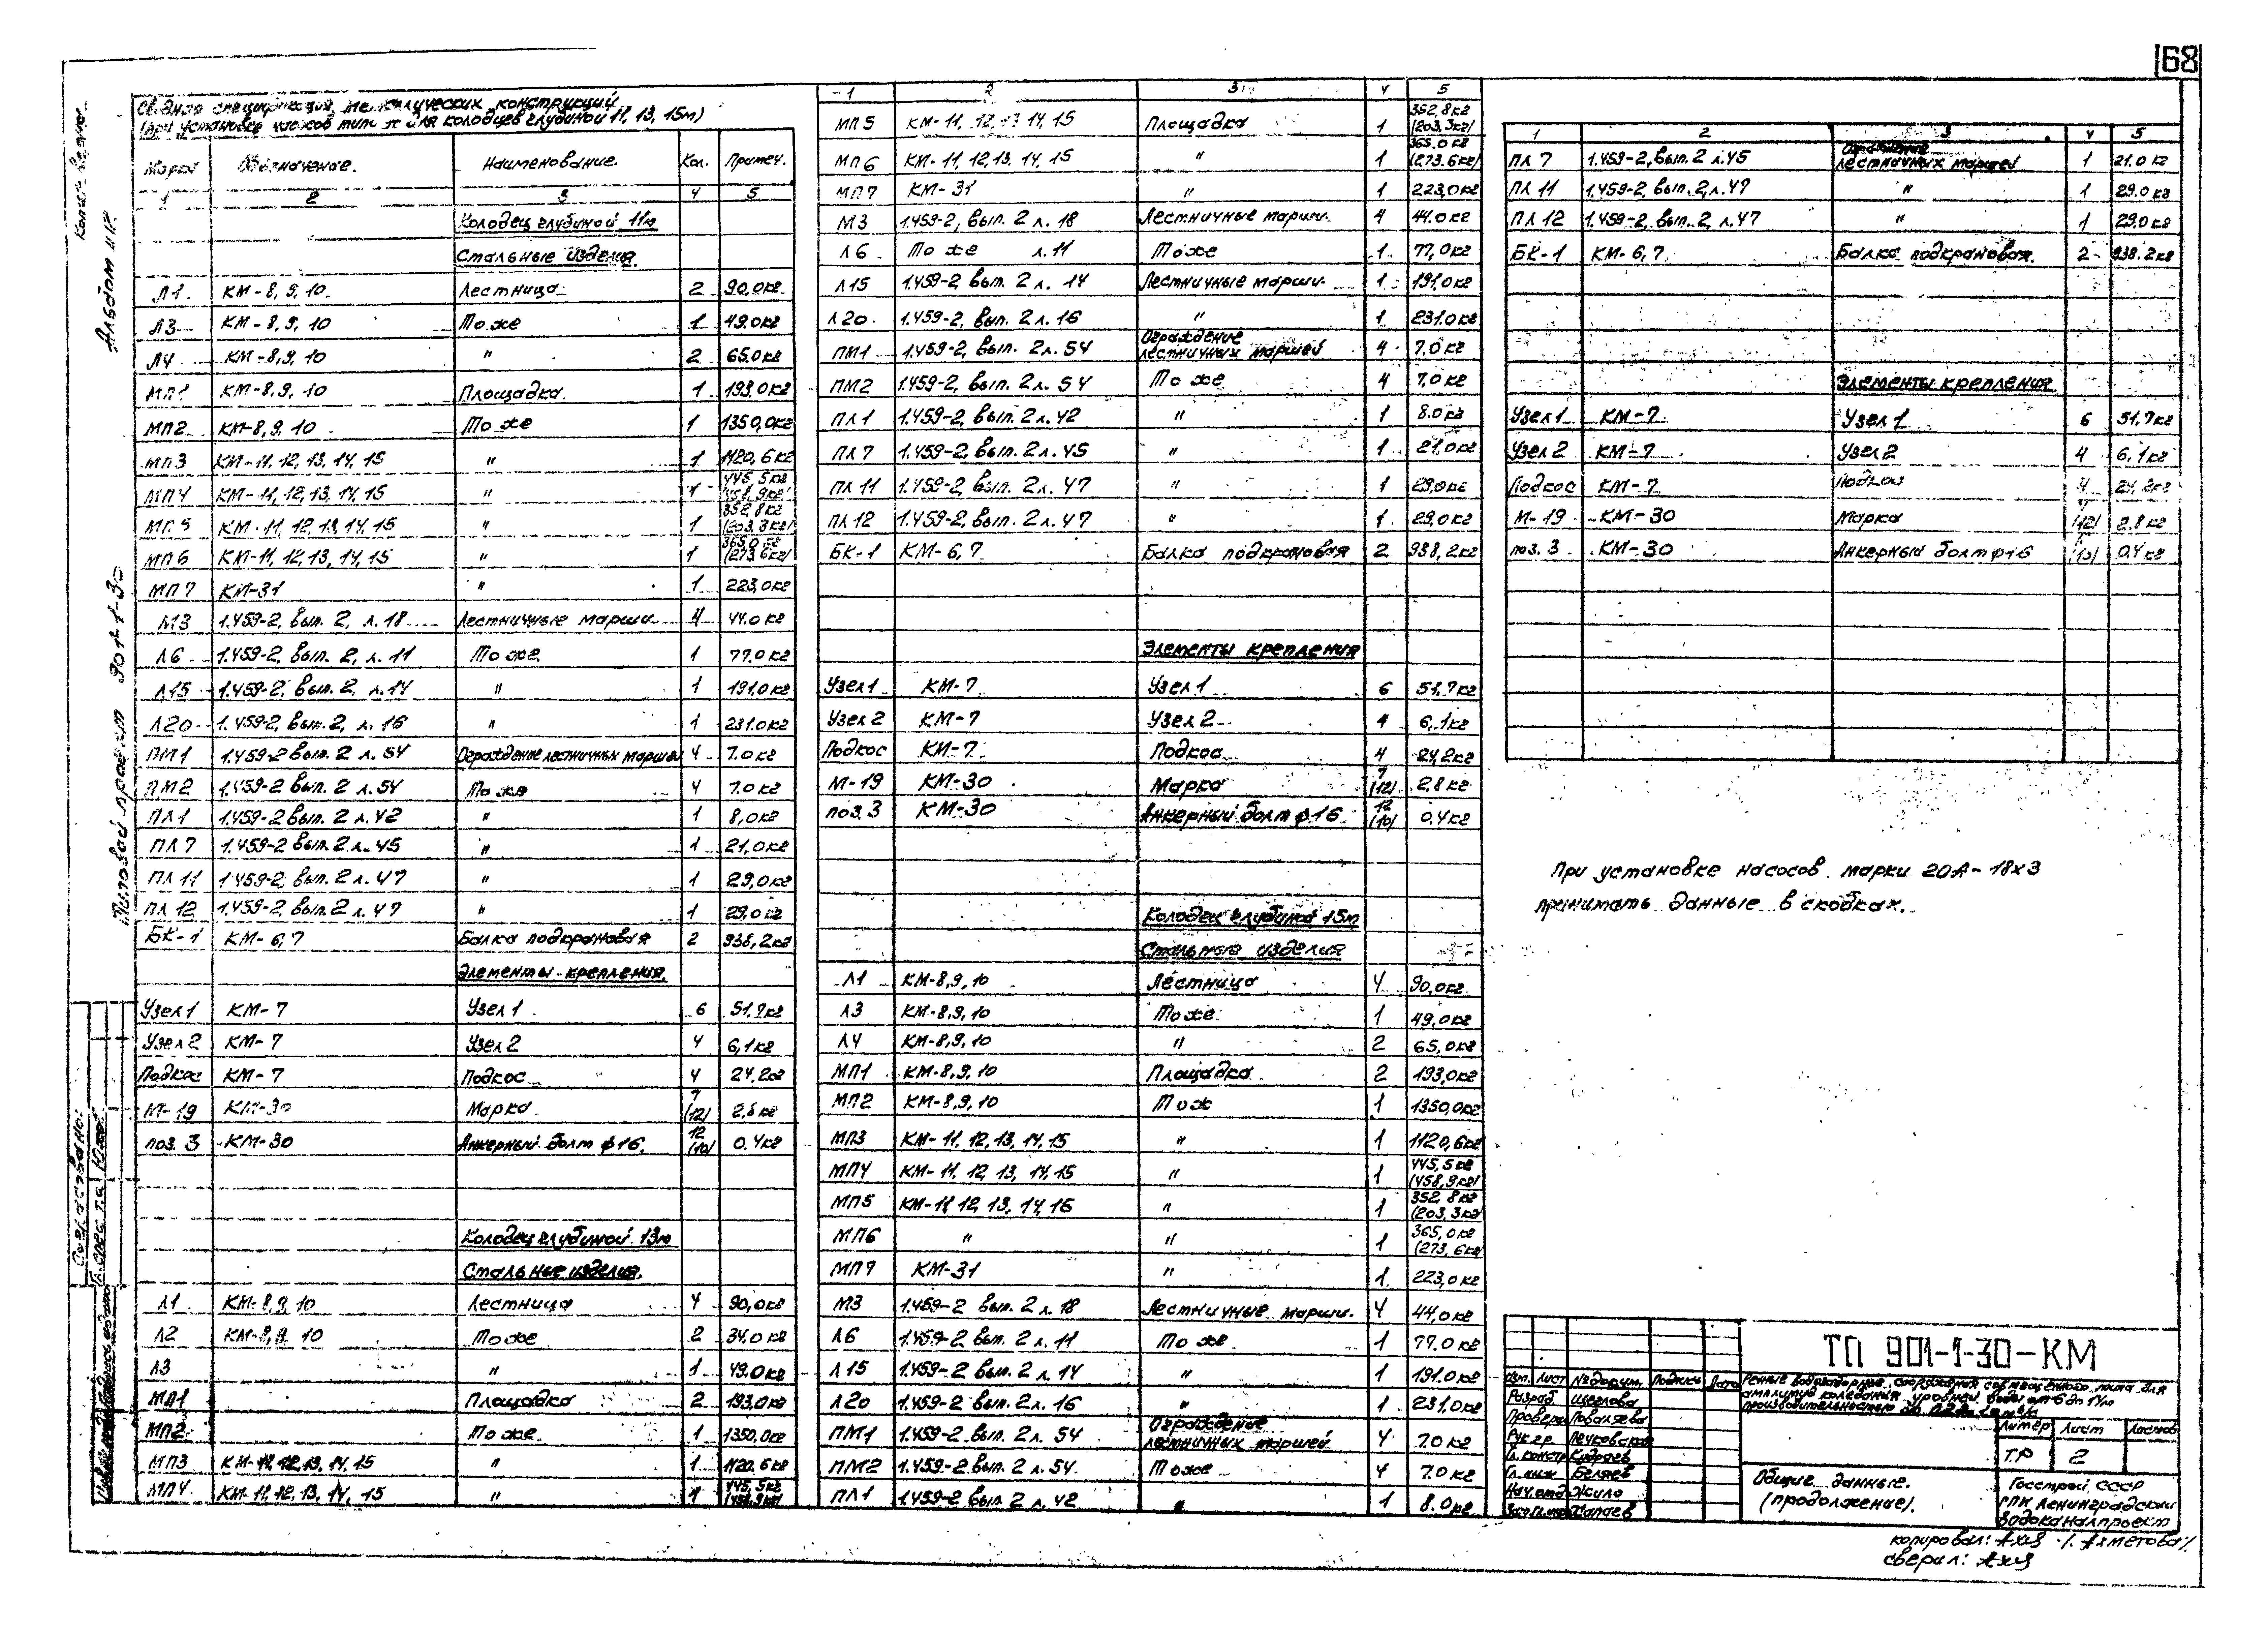 68
Альбом
Типовой проект 901-1-30
Сводная спецификация металлических конструкций
(при установке насосов типа для колодцев глубиной 11, 13, 15м)
Марка Обозначение. Наименование. Кол. Примеч.
1 2 3 4 5
Колодец глубиной 11м
Стальные изделия
Л1 КМ-8,9,10 Лестница 2 90,0кг
Л3 КМ-8,9,10 То же 1 49.0кг
Л4 КМ-8,9,10 " 2 65.0кг
МП1 КМ-8,9,10 Площадка 1 193.0кг
МП2 КМ-8,9,10 То же 1 1350,0кг
МП3 КМ-11,12,13,14,15 " 1 1120,6кг
МП4 КМ-11,12,13,14,15 " 1 445,5кг (458,9кг)
МП5 КМ-11,12,13,14,15 " 1 352,8кг (203,3кг)
МП6 КМ-11,12,13,14,15 " 1 365.0кг (273.6кг)
МП7 КМ-31 " 1 223,0кг
М3 1.459-2, вып. 2, л.18 Лестничные марши 4 44.0кг
Л6 1.459-2, вып. 2, л.11 То же 1 77.0кг
Л15 1.459-2, вып. 2, л.14 " 1 191.0кг
Л20 1.459-2, вып. 2, л.16 " 1 231.0кг
ПМ1 1.459-2 вып. 2 л.54 Ограждение лестничных маршей 4 7.0кг
ПМ2 1.459-2 вып. 2 л.54 То же 4 7.0кг
ПЛ1 1.459-2 вып. 2 л.42 " 1 8,0кг
ПЛ7 1.459-2 вып. 2 л.45 " 1 21,0кг
ПЛ11 1.459-2, вып. 2 л.47 " 1 29,0кг
ПЛ12 1.459-2, вып. 2 л.47 " 1 29.0кг
БК-1 КМ-6,7 Балка подкрановая 2 938,2кг
Элементы крепления
Узел1 КМ-7 Узел1 6 51,7кг
Узел2 КМ-7 Узел2 4 6,1кг
Подкос КМ-7 Подкос 4 24,2кг
М-19 КМ-30 Марка 7 (12) 2,8кг
поз. 3 КМ-30 Анкерный болт ф16. 12 (10) 0.4кг
Колодец глубиной 13м
Стальные изделия.
Л1 КМ-8,9,10 Лестница 4 90,0кг
Л2 КМ-8,9,10 То же 2 34.0кг
Л3 " 1 49.0кг
МП1 Площадка 2 193,0кг
МП2 То же 1 1350,0кг
МП3 КМ-11,12,13,14,15 " 1 1120.6кг
МП4 КМ-11,12,13,14,15 " 1 445,5кг (458,9кг)
1 2 3 4 5
МП5 КМ-11,12,13,14,15 Площадка 1 352,8кг (203,3кг)
МП6 КМ-11,12,13,14,15 " 1 365.0кг (273.6кг)
МП7 КМ-31 " 1 223,0кг
М3 1.459-2, вып. 2 л.18 Лестничные марши 4 44.0кг
Л6 То же л.11 То же 1 77,0кг
Л15 1.459-2 вып. 2 л. 14 Лестничные марши 1 191.0кг
Л20 1.459-2, вып. 2 л.16 " 1 231.0кг
ПМ1 1.459-2, вып. 2 л.54 Ограждение лестничных маршей 4 7.0кг
ПМ2 1.459-2, вып. 2 л.54 То же 4 7.0кг
ПЛ1 1.459-2, вып. 2 л.42 " 1 8.0кг
ПЛ7 1.459-2, вып. 2 л.45 " 1 21.0кг
ПЛ11 1.459-2, вып. 2 л.47 " 1 29,0кг
ПЛ12 1.459-2, вып. 2 л.47 " 1 29,0кг
БК-1 КМ-6,7 Балка подкрановая 2 938,2кг
Элементы крепления
Узел1 КМ-7 Узел1 6 51,7кг
Узел2 КМ-7 Узел2 4 6,1кг
Подкос КМ-7 Подкос 4 24,2кг
М-19 КМ-30 Марка 7 (12) 2,8кг
поз. 3 КМ-30 Анкерный болт ф16 12 (10) 0.4кг
Колодец глубиной 15м
Стальные изделия
Л1 КМ-8,9,10 Лестница 4 90,0кг
Л3 КМ-8,9,10 То же 1 49,0кг
Л4 КМ-8,9,10 " 2 65,0кг
МП1 КМ-8,9,10 Площадка 2 193,0кг
МП2 КМ-8,9,10 То ж 1 1350,0кг
МП3 КМ-11,12,13,14,15 " 1 1120,6кг
МП4 КМ-11,12,13,14,15 " 1 445,5кг (458,9кг)
МП5 КМ-11,12,13,14,16 " 1 352,8кг (203,3кг)
МП6 " " 1 365,0кг (273,6кг)
МП7 КМ-31 " 1 223,0кг
М3 1.459-2 вып. 2 л.18 Лестничные марши. 4 44,0кг
Л6 1.459-2 вып. 2 л.11 То же 1 77.0кг
Л15 1.459-2 вып. 2 л.14 " 1 191.0кг
Л20 1.459-2 вып. 2 л.16 " 1 231,0кг
ПМ1 1.459-2 вып. 2 л.54 Ограждение лестничных маршей 4 7.0кг
ПМ2 1.459-2 вып. 2 л.54 То же 4 7.0кг
ПЛ1 1.459-2 вып. 2 л.42 " 1 8.0кг
1 2 3 4 5
ПЛ7 1.459-2, вып. 2 л.45 Ограждение лестничных маршей 1 21.0кг
ПЛ11 1.459-2, вып. 2, л.47 " 1 29.0кг
ПЛ12 1.459-2, вып. 2, л.47 " 1 29.0кг
БК-1 КМ-6,7 Балка подкрановая. 2 938.2кг
Элементы крепления
Узел1 КМ-7 Узел1 6 51,7кг
Узел2 КМ-7 Узел2 4 6,1кг
Подкос КМ-7 Подкос 4 24,2кг
М-19 КМ-30 Марка 7 (12) 2.8кг
поз. 3 КМ-30 Анкерный болт ф16 (10) 0.4кг
При установке насосов марки 20А-18х3
принимать данные в скобках.
ТП 901-1-30-КМ
Изм. Лист №докум. Подпись Дата
Речные водозаборные сооружения совмещенного типа для
амплитуд колебания уровней воды от 6 до 14м
производительностью
Разраб. Щеглова
Провери
Рук.гр.
Гл.констр Кудряев
Гл.инж Беляев
Нач.отд Жило
Литер Лист Листов
ТР 2
Общие данные.
(продолжение).
Госстрой СССР
ГПИ Ленинградский
Водоканалпроект
копировал: Ахметова
сверил: